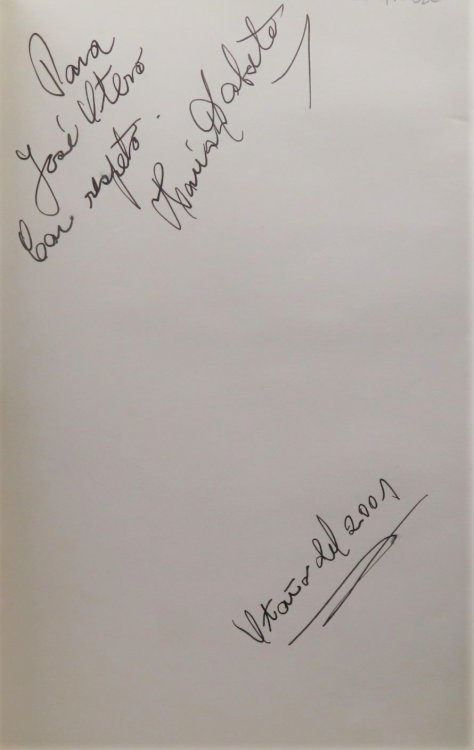 Para
José Otero
Con respeto.
Otoño del 2001